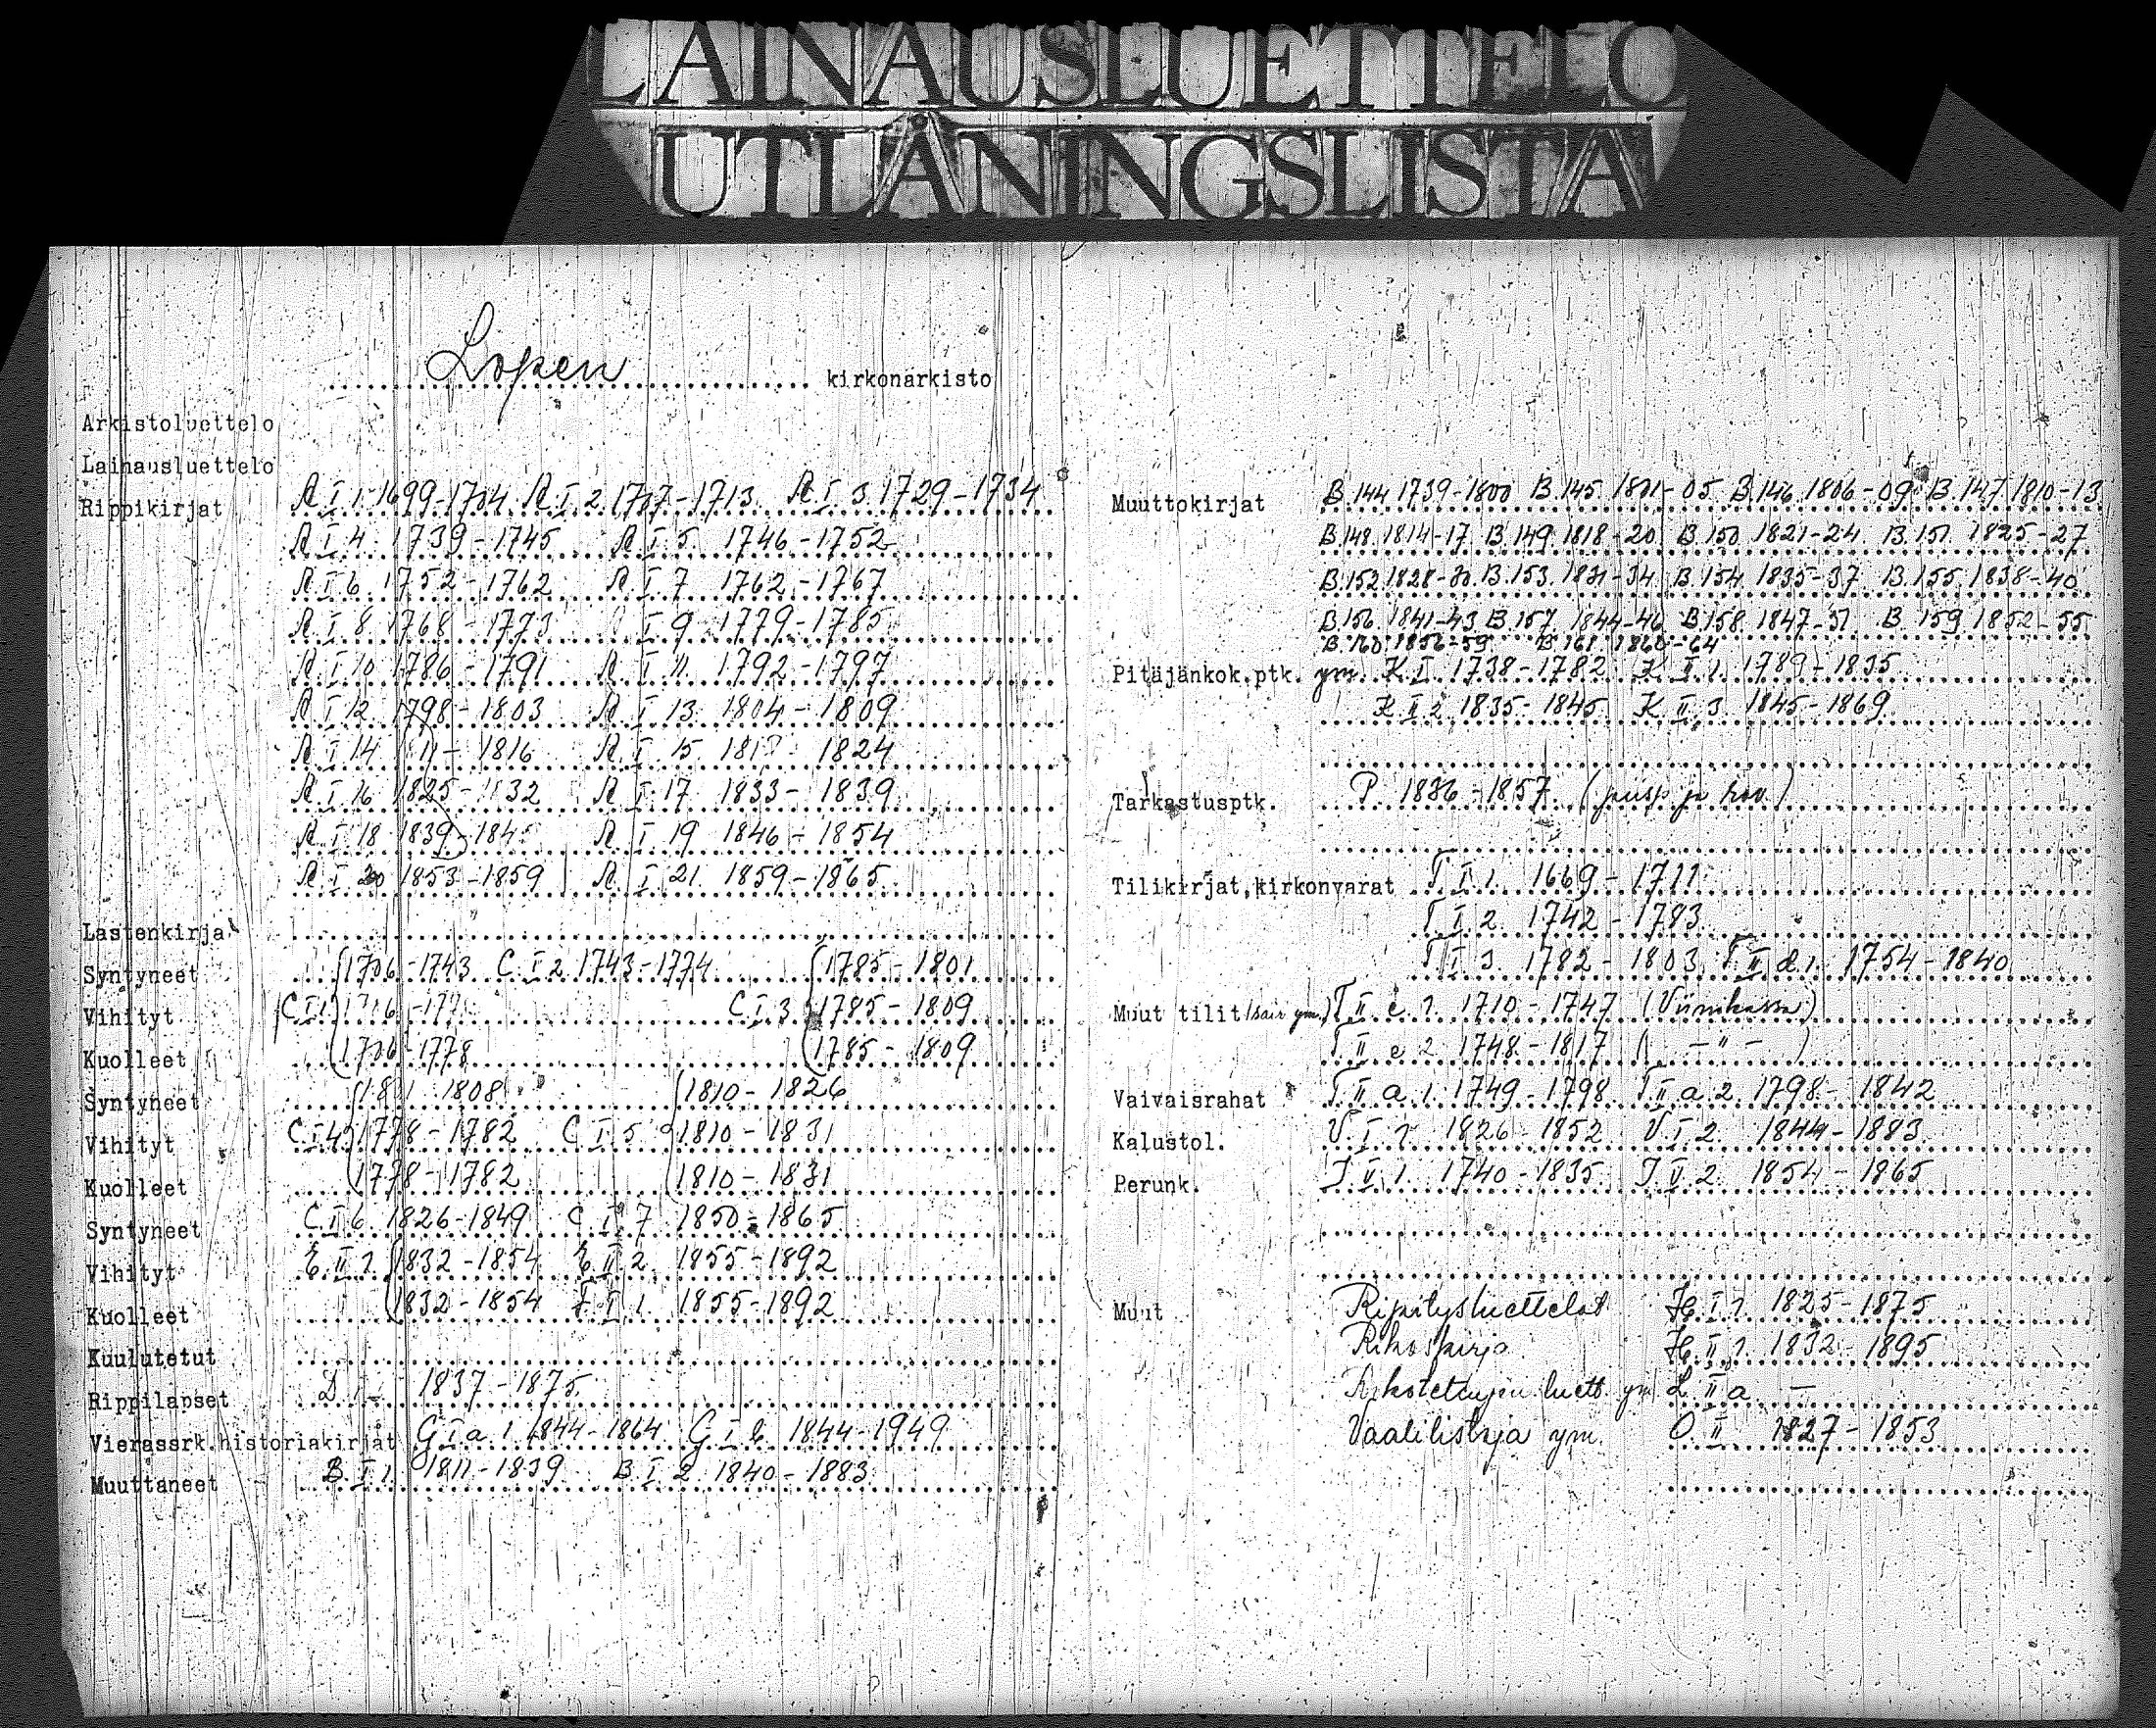 LAINAUSLUETTELO
UTLÅNINGSLISTA
Lopen kirkonarkisto
Arkistoluettelo
Lainausluettelo
Rippikirjat A I 1 1699-1704 A I 2 1707-1713 A I 3 1729-1734
A I 4 1739-1745 A I 5 1746-1752
A I 6 1752-1762 A I 7 1762-1767
A I 8 1768-1773 A I 9 1779-1785
A I 10 1786-1791 A I 11 1792-1797
A I 12 1798-1803 A I 13 1804-1809
A I 14 1811-1816 A I 15 1817 1824
A I 16 1825-1832 A I 17 1833-1839
A I 18 1839-184 A I 19 1846-1854
A I 20 1853-1859 A I 21 1859-1865
Lastenkirja
Syntyneet 1706-1743 C I 2 1743-1774 1785-1801
Vihityt C I 1 C I 3 1785-1809
Kuolleet 1706-1778 1785-1809
Syntyneet 1801 1808 1810-1826
Vihityt C I 4 1778-1782 C I 5 1810-1831
Kuolleet 1778-1782 1810-1831
Syntyneet C I 6 1826-1849 C I 7 1850-1865
Vihityt E II 1 1832-1854 E II 2 1855-1892
Kuolleet 1832-1854 F I 1 1855-1892
Kuulutetut
Rippilapset D 1 - 1837-1875
Vierassrk.historiakirjat G I a 1 1844-1864 G I b 1844-1949
Muuttaneet B I 1 1811-1839 B I 2 1840-1883
Muuttokirjat B.144 1739-1800 B.145 1801-05 B.146 1806-09 B.147 1810-13
B.148 1814-17 B.149 1818-20 B.150 1821-24 B.151 1825-27
B.152 1828-30 B.153 1831-34 B.154 1835-37 B.155 1838-40
B.156 1841-43 B.157 1844-46 B.158 1847-51 B.159 1852-55
B.160 1856-59 B.161 1860-64
Pitäjänkok.ptk. ym. K I 1738-1782 K II 1 1789-1835
K II 2 1835-1845 K II 3 1845-1869
Tarkastusptk. P. 1836-1857 (piisp. ja rov.)
Tilikirjat,kirkonvarat T I 1 1669-1711
T I 2 1742-1783
T I 3 1782-1803 T II d 1 1754-1840
Muut tilit (sair ym.) T II e 1 1710-1747 (Viinikassa)
T II e 2 1748-1817 ( -"- )
Vaivaisrahat T II a 1 1749-1798 T II a 2 1798-1842
Kalustol. V I 1 1826-1852 V I 2 1844-1883
Perunk. J II 1 1740-1835 J II 2 1854-1865
Muut Ripitysluettelot H I 1 1825-1875
Rikoskirja H II 1 1832-1895
luett. ym L II a -
Vaalilistoja ym. O II 1827-1853